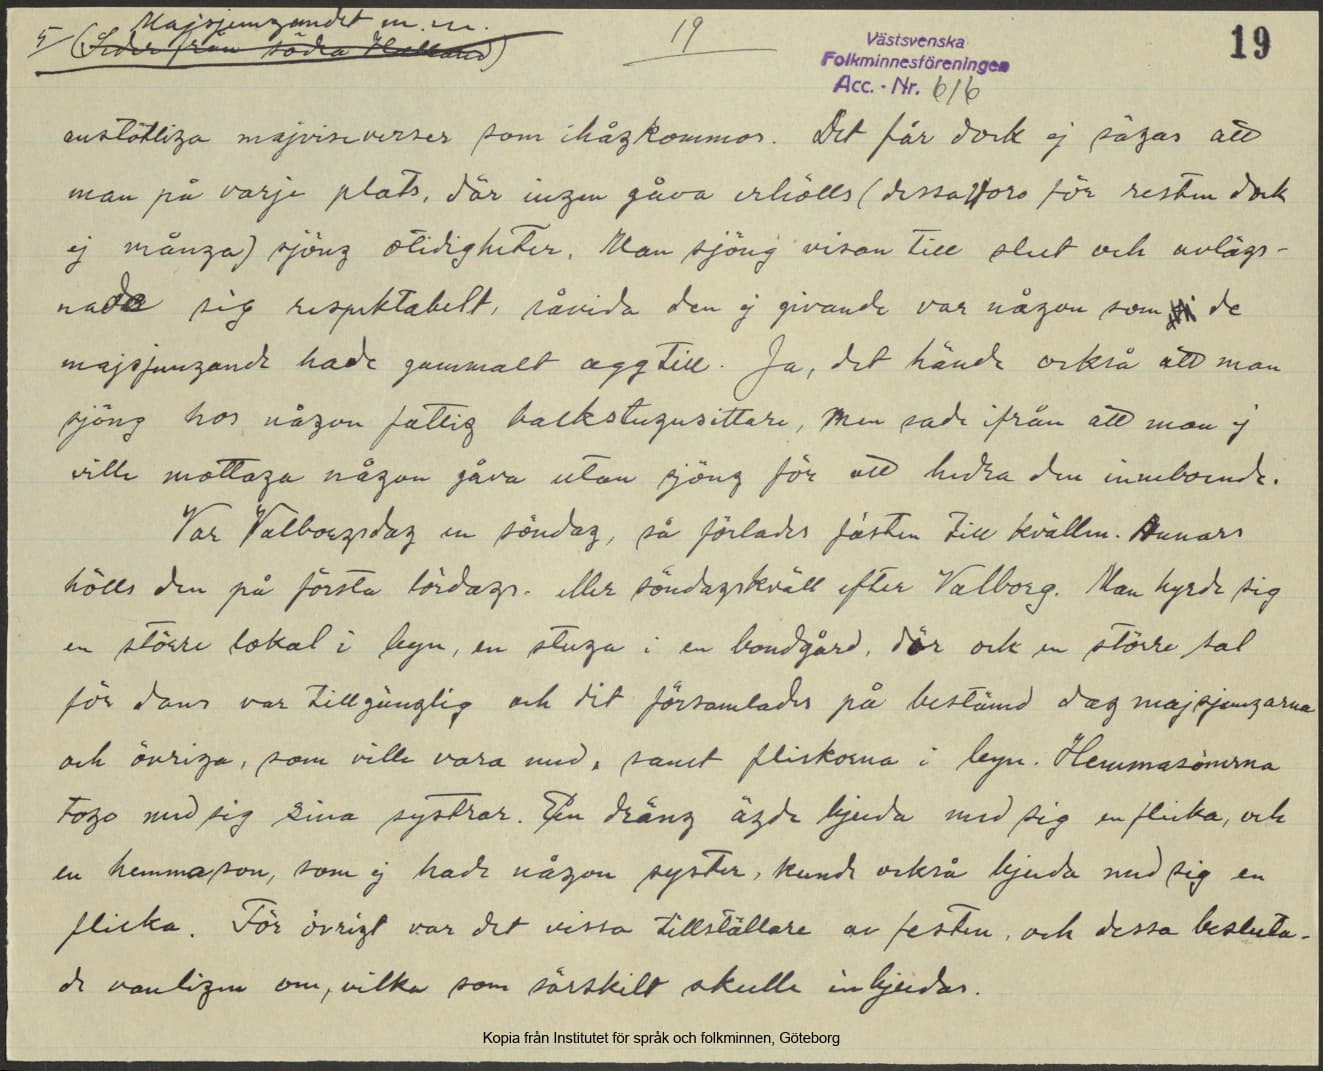 Majsjungandet m.m.
5/ (Seder från södra Halland)
19
Västsvenska
Folkminnesföreningen
Acc. - Nr. 616
19
anstötliga majviseverser som ihågkommos. Det får dock ej sägas att
man på varje plats, där ingen gåva erhölls (dessa voro för resten dock
ej många) sjöng otidigheter. Man sjöng visan till slut och avlägs-
nade sig respektabelt, såvida den ej givande var någon som de
majsjungande hade gammalt agg till. Ja, det hände också att man
sjöng hos någon fattig backstugusittare, men sade ifrån att man ej
ville mottaga någon gåva utan sjöng för att hedra den inneboende.
Var Valborgsdag en söndag, så förlades festen till kvällen. Annars
hölls den på första lördags- eller söndagskväll efter Valborg. Man hyrde sig
en större lokal i byn, en stuga i en bondgård, där ock en större sal
för dans var tillgänglig och dit församlades på bestämd dag majsjungarna
och övriga, som ville vara med, samt flickorna i byn. Hemmasönerna
togo med sig sina systrar. En dräng ägde bjuda med sig en flicka, och
en hemmason, som ej hade någon syster, kunde också bjuda med sig en
flicka. För övrigt var det vissa tillställare av festen, och dessa besluta-
de vanligen om, vilka som särskilt skulle inbjudas.
Kopia från Institutet för språk och folkminnen, Göteborg